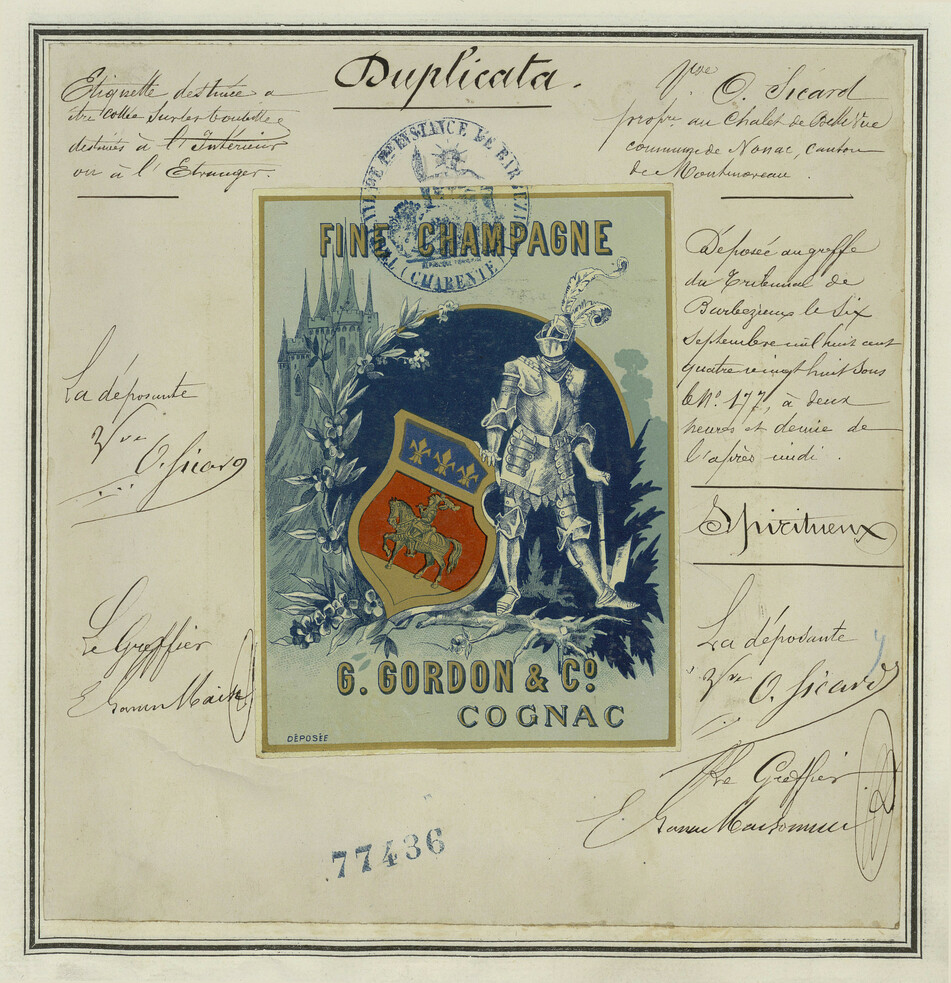 Duplicata.
Etiquette destinée à
être collée sur les bouteilles
destinées à l'Intérieur
ou à l'Etranger.
Vve O. Sicard
propre au Chalet de Belle Vue
commune de Nonac, canton
de Montmoreau.
TRIBUNAL DE 1re INSTANCE DE BARBEZIEUX
(CHARENTE)
FINE CHAMPAGNE
Déposée au greffe
du Tribunal de
Barbezieux le Six
Septembre mil huit cent
quatre vingt huit sous
le No. 177, à deux
heures et demie de
l'après midi.
La déposante
Vve O. Sicard
Spiritueux
Le Greffier
La déposante
Vve O. Sicard
G. GORDON & Co.
COGNAC
DÉPOSÉE
Le Greffier
77436